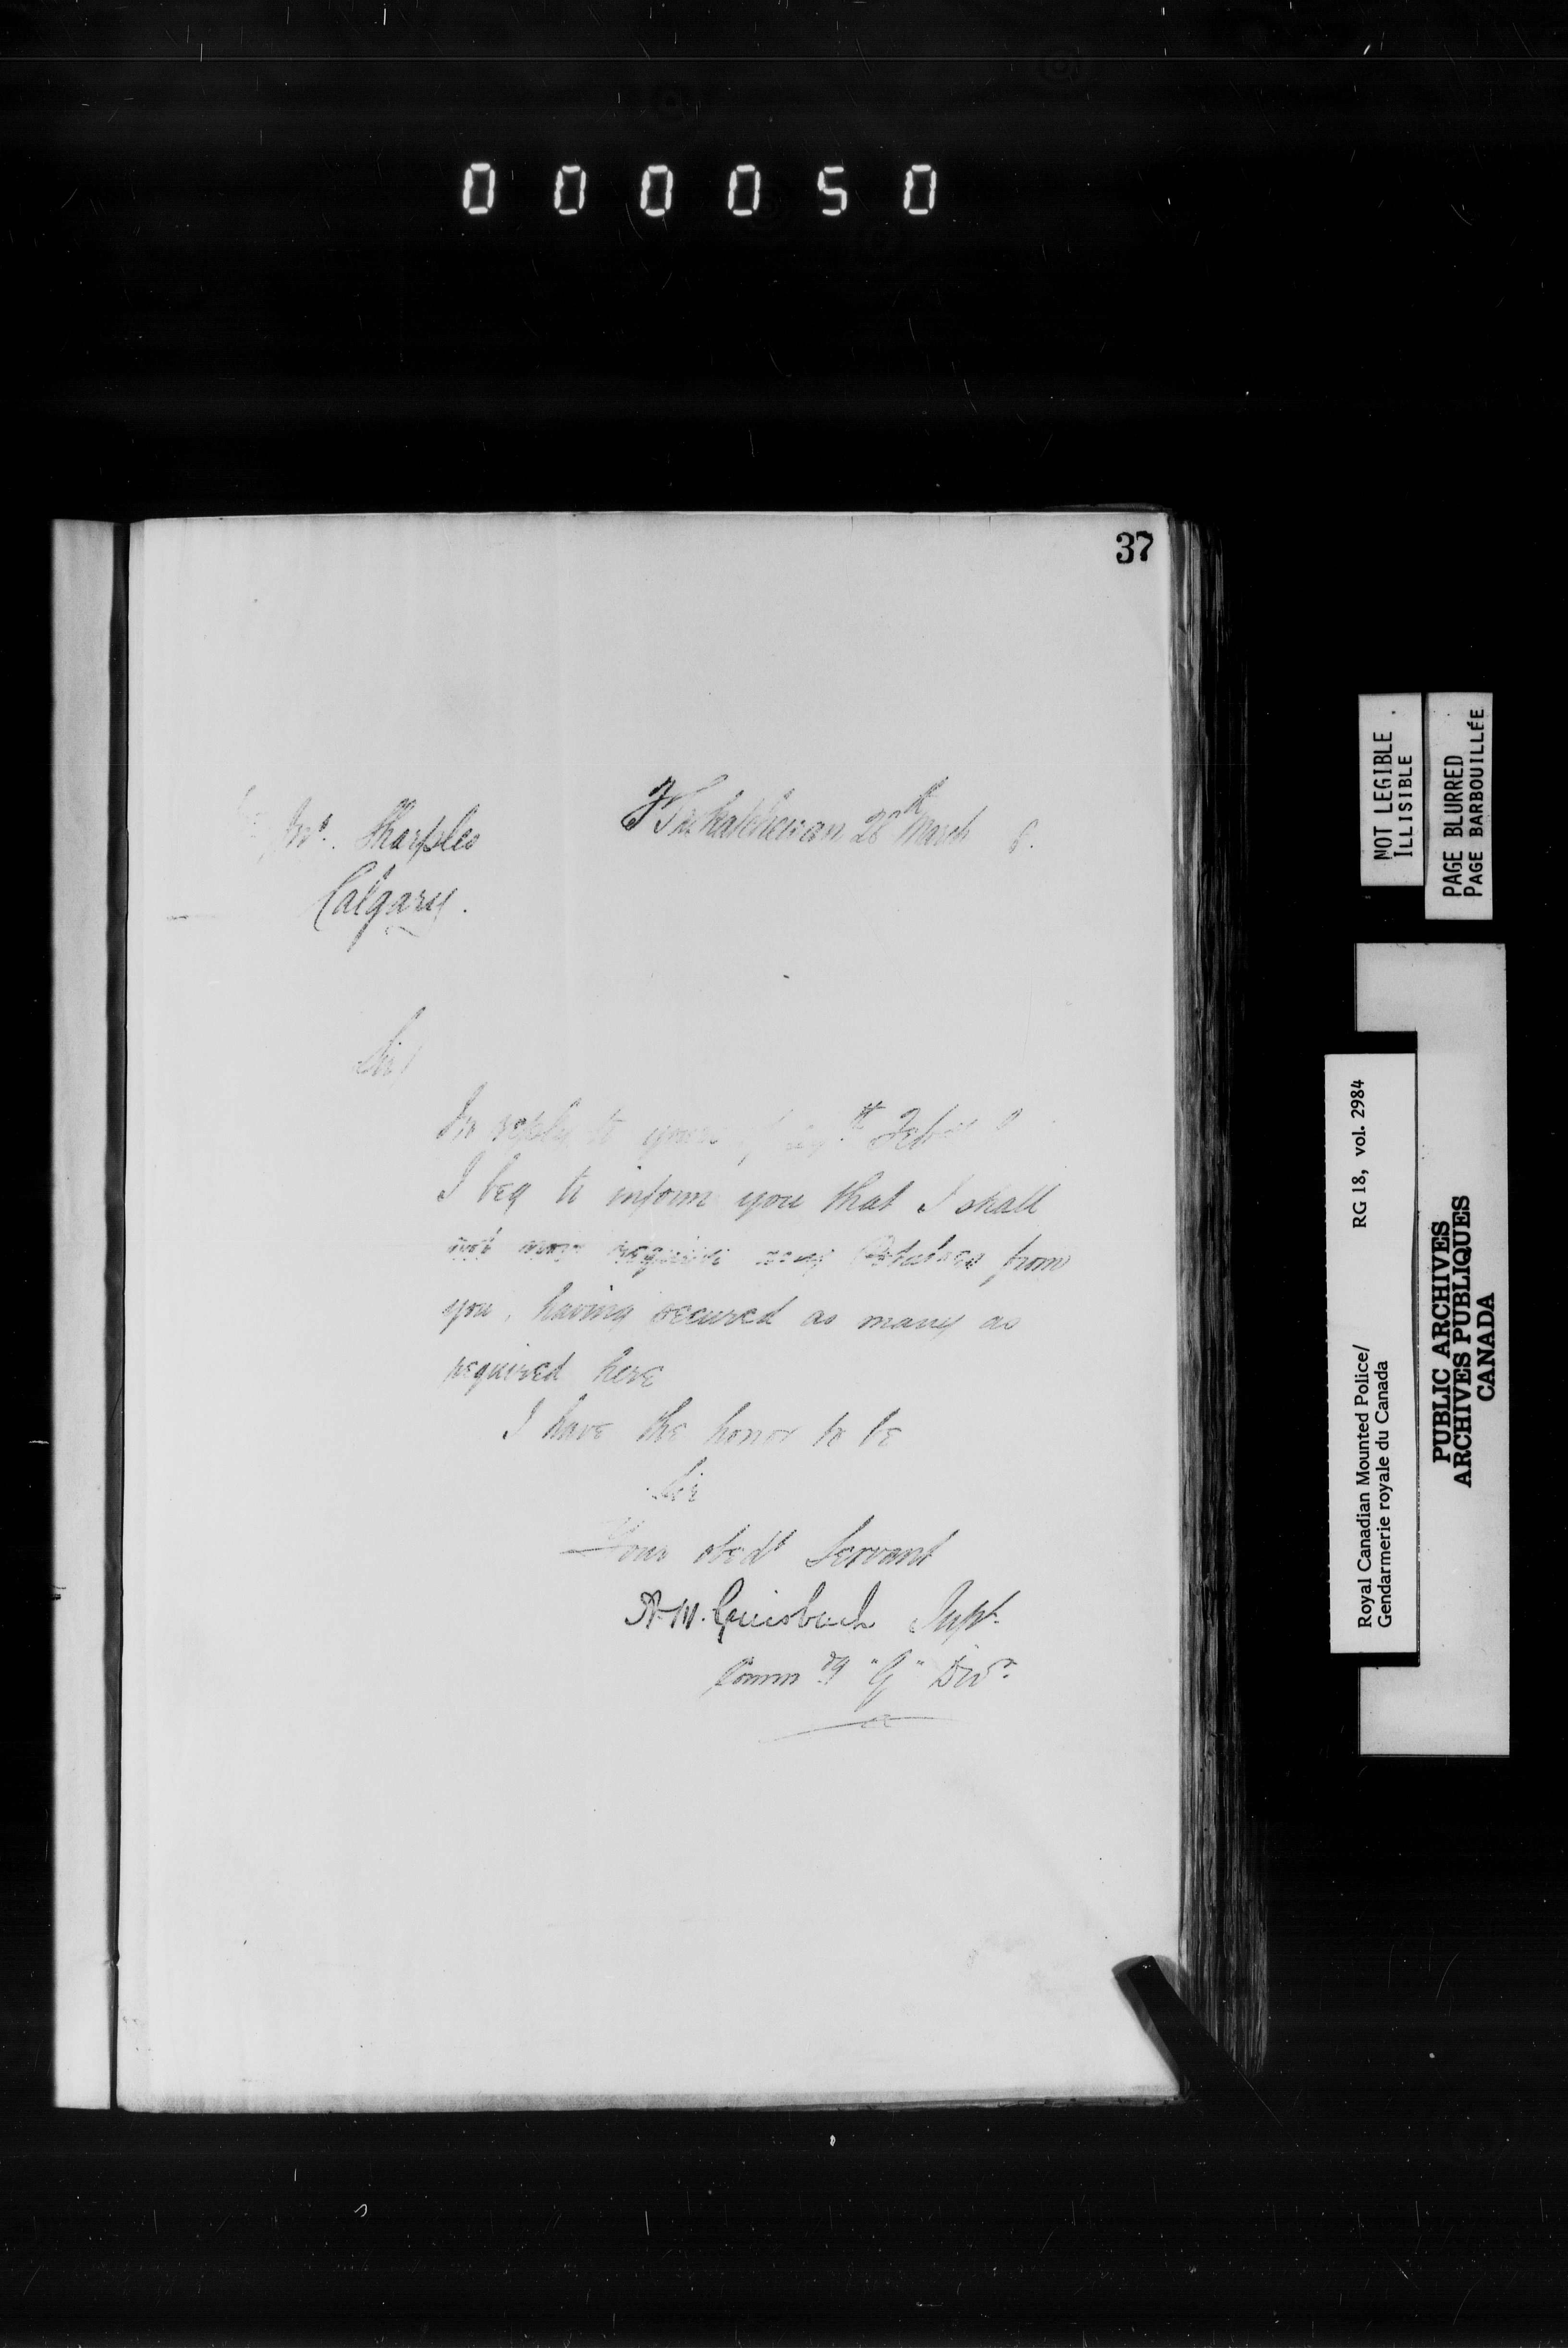 000050
37
F Saskatchewan 28th March 8.
Mr. Sharples
Calgary.
Sir,
In reply to yours of th Feby
I beg to inform you that I shall
not now require any Potatoes from
you, having secured as many as
required here
I have the honor to be
Sir
Your obedt Servant
A.W. Griesbach Supt.
Commdg "G" Divn.
NOT LEGIBLE
ILLISIBLE
PAGE BLURRED
PAGE BARBOUILLÉE
Royal Canadian Mounted Police/ RG 18, vol. 2984
Gendarmerie royale du Canada
PUBLIC ARCHIVES
ARCHIVES PUBLIQUES
CANADA